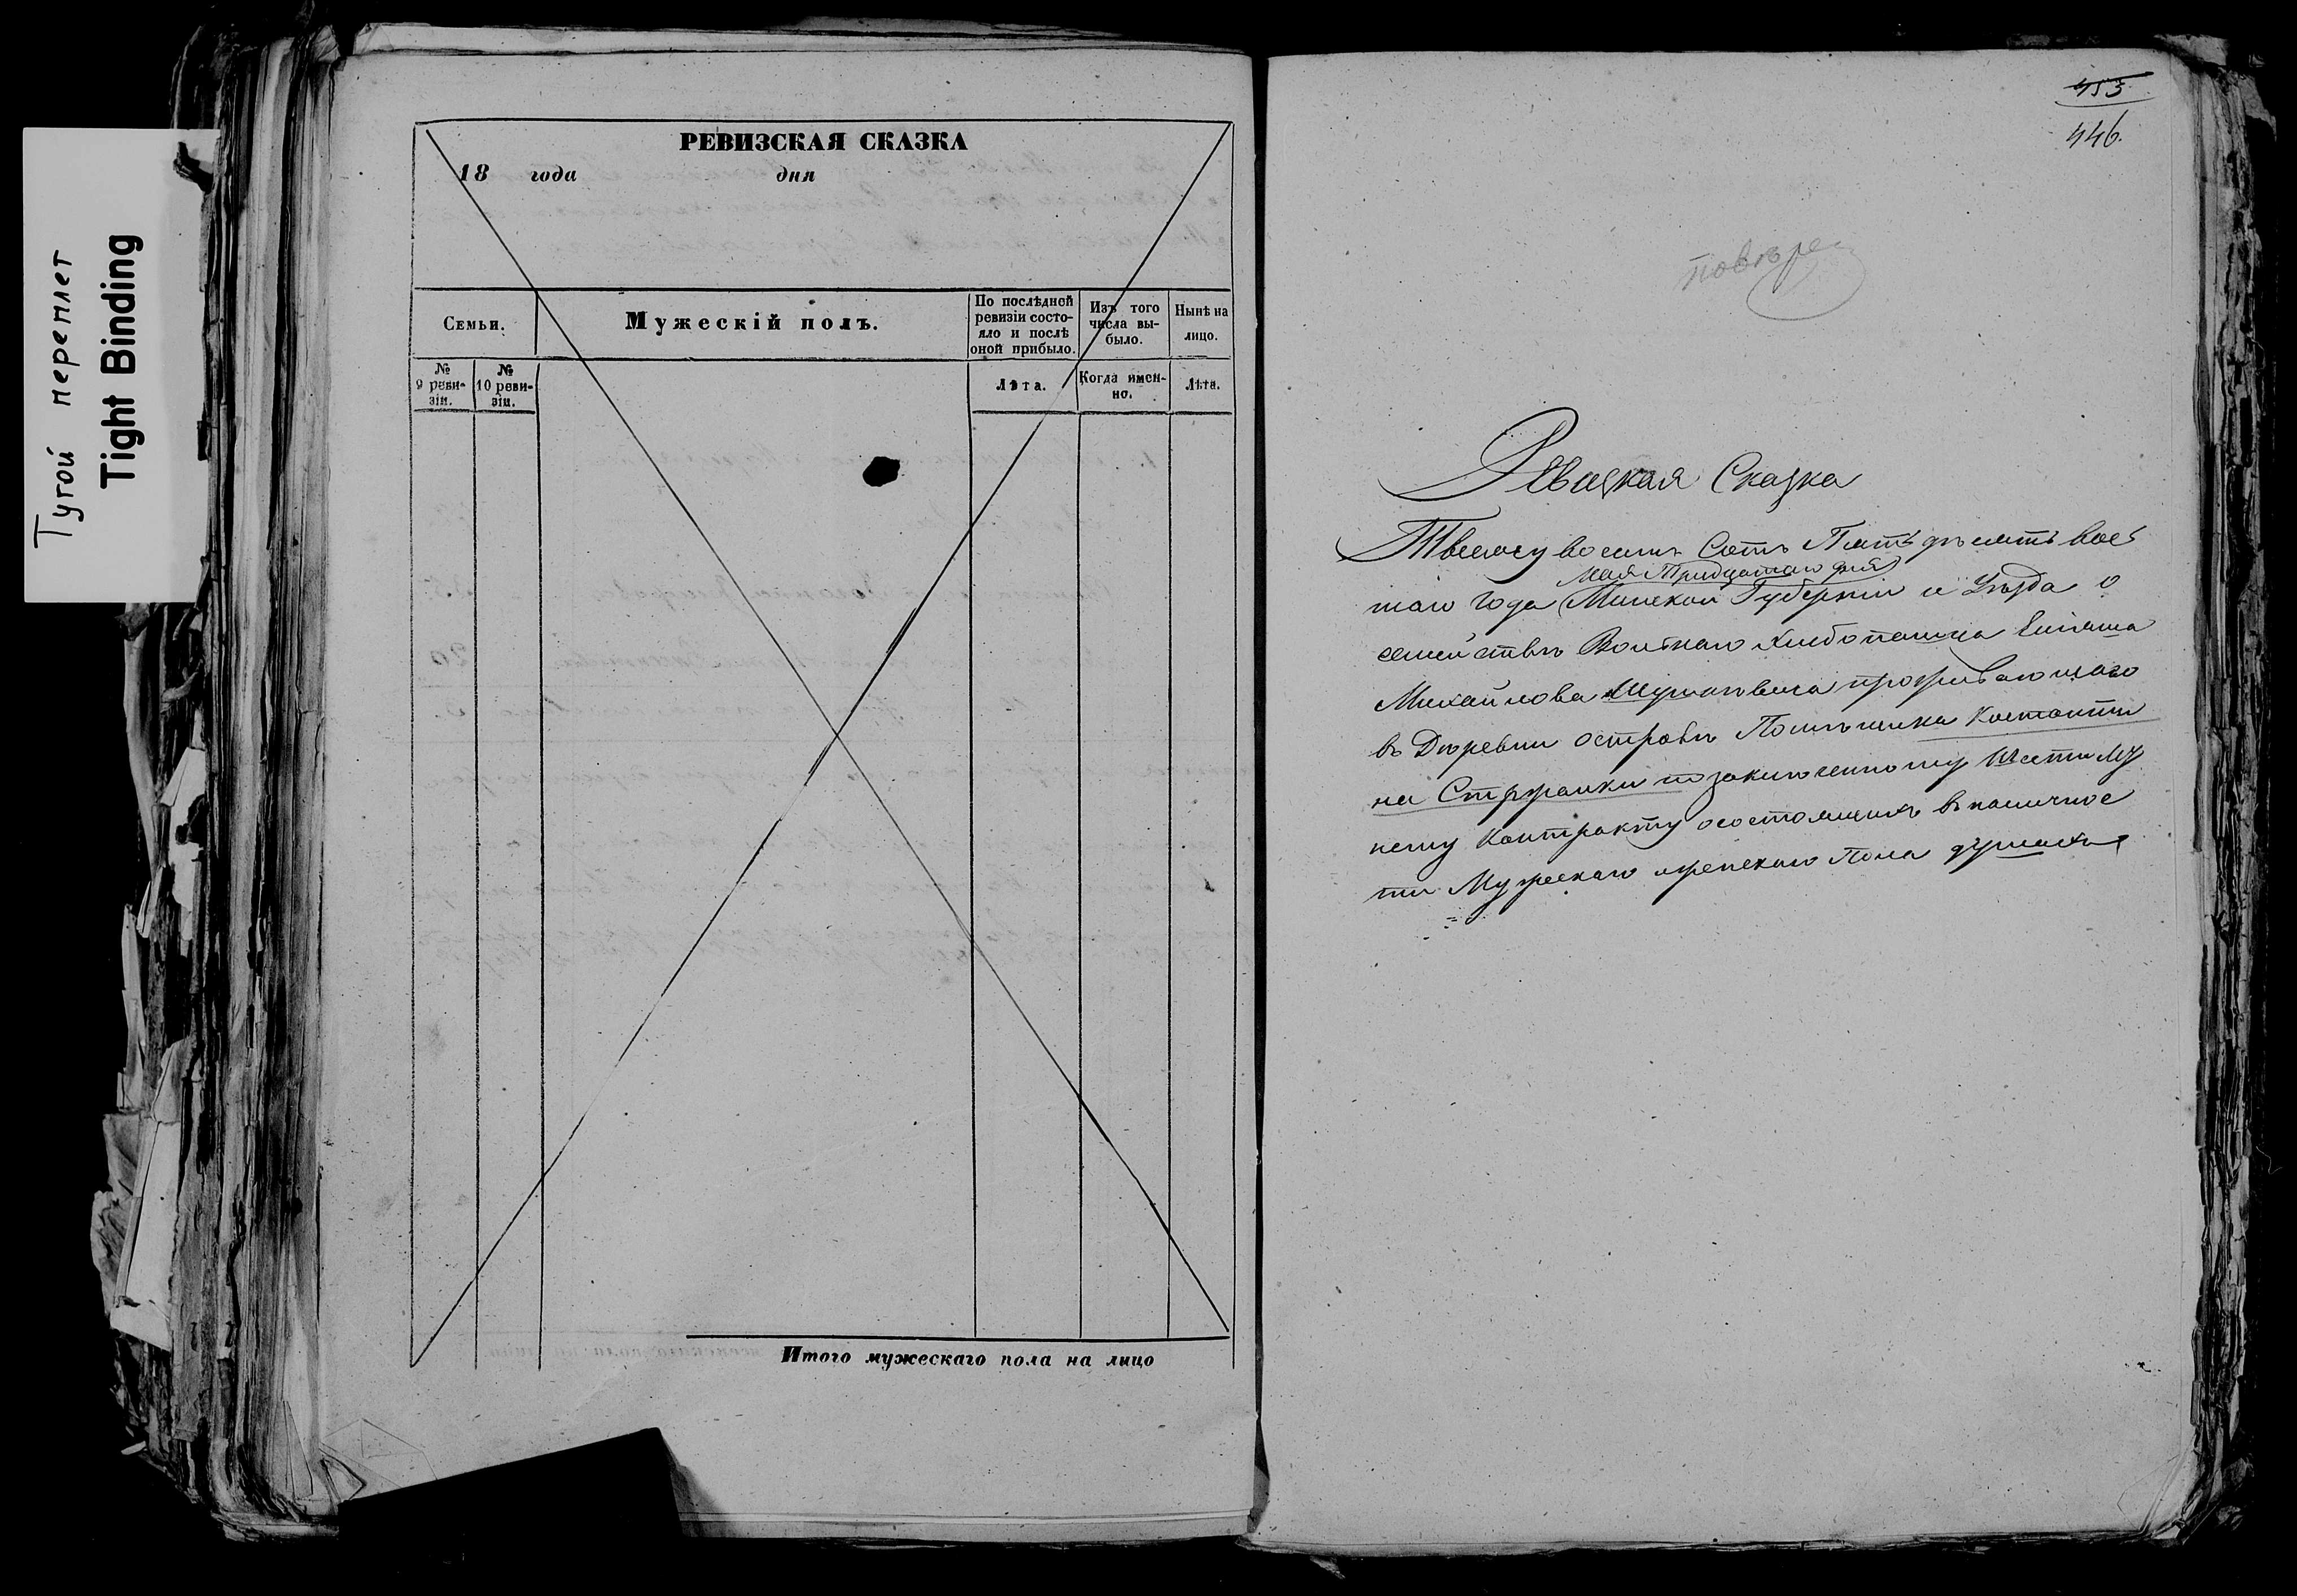 Тугой переплет
Tight Binding
РЕВИЗСКАЯ СКАЗКА
18 года дня
Семьи.
Мужескій полъ.
По послѣдней ревизіи состо-
яло и послѣ оной прибыло.
Изъ того числа вы-
было.
Нынѣ на лицо.
№ 9 реви-
зіи.
№ 10 реви-
зіи.
Лѣта.
Когда имен-
но.
Лѣта.
Итого мужескаго пола на лицо
453
446.
Ревизкая Сказка
Тысячу восемь Сотъ Пятьдѣсятъ вось
Мая Тридцатаго дня
маго года Минской Губерніи и Уѣзда о
семействѣ Вольнаго хлебопашца
Михайлова проживающаго
въ Дѣревни островѣ Помѣщика Костанти
на по заключенному
нему Контракту о состоящихъ въ наличнос
ти Мужескаго женскаго Пола душахъ